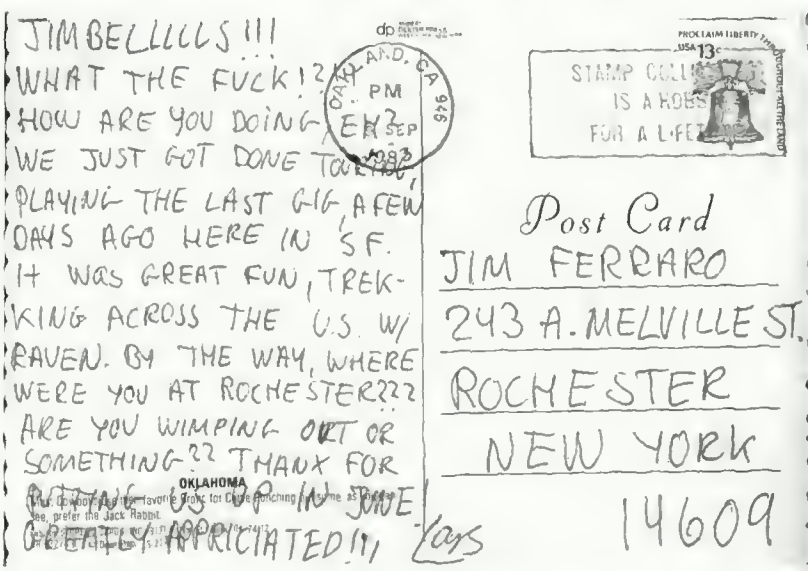 JIMBELLLLLS !!!
WHAT THE FUCK!?!
HOW ARE YOU DOING, EH?
WE JUST GOT DONE TOURING,
PLAYING THE LAST GIG, A FEW
DAYS AGO HERE IN S.F.
It WAS GREAT FUN, TREK-
KING ACROSS THE U.S. W/
RAVEN. BY THE WAY, WHERE
WERE YOU AT ROCHESTER???
ARE YOU WIMPING OUT OR
SOMETHING?? THANX FOR
PUTTING US UP IN JUNE!
GREATLY APPRICIATED!!!
Lars
OKLAHOMA
favorite Bronc for
see, prefer the Jack Rabbit.
dp
OAKLAND, CA 946
PM
SEP
1983
STAMP COLLE
IS A HOBB
FOR A LIFET
PROCLAIM LIBERTY THROUGHOUT ALL THE LAND
USA 13c
Post Card
JIM FERRARO
243 A. MELVILLE ST.
ROCHESTER
NEW YORK
14609